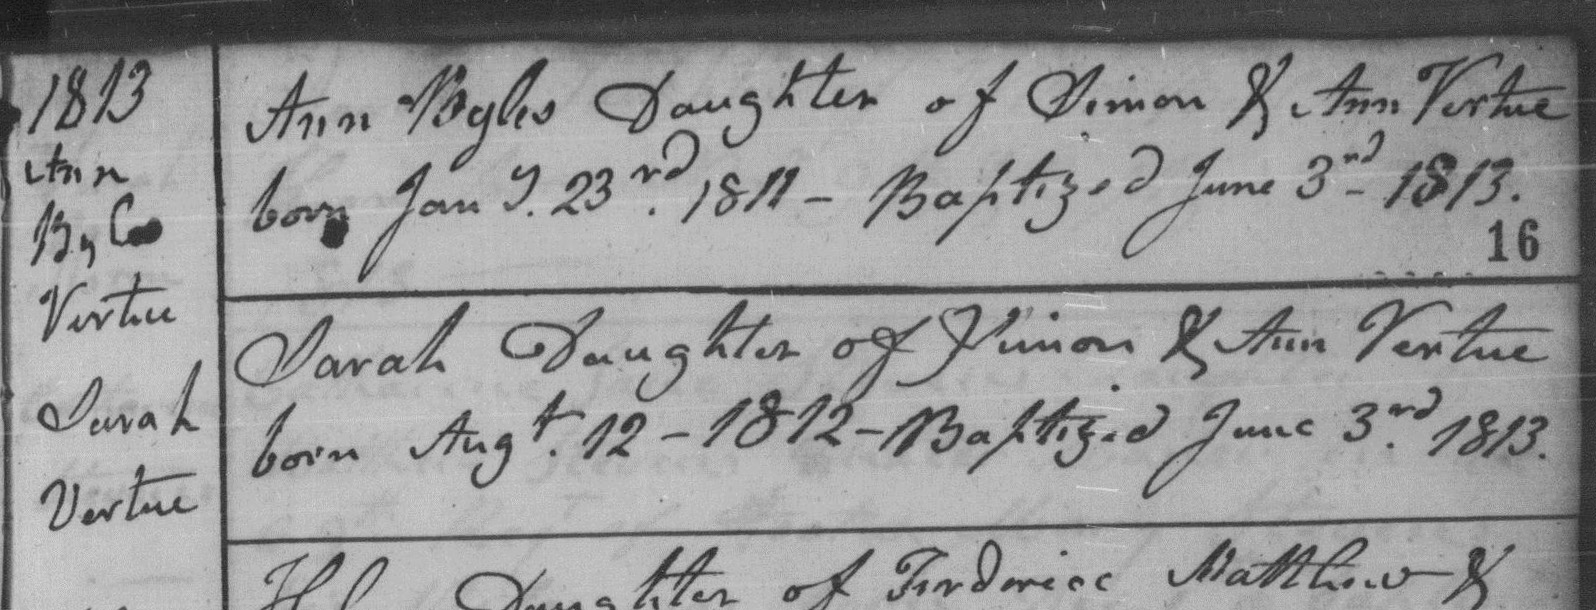 1813
Ann
Byles
Virtue
Ann Byles Daughter of Simon & Ann Virtue
born Jany. 23rd. 1811 - Baptized June 3rd - 1813.
16
Sarah
Vertue
Sarah Daughter of Simon & Ann Vertue
born Augt. 12 - 1812 - Baptized June 3rd. 1813.
Daughter of Frederick Matthew &